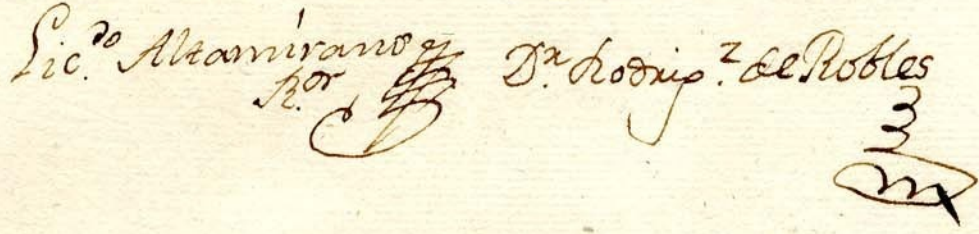 Lic.do Altamirano Dr. Rodrig.z de Robles
R.or